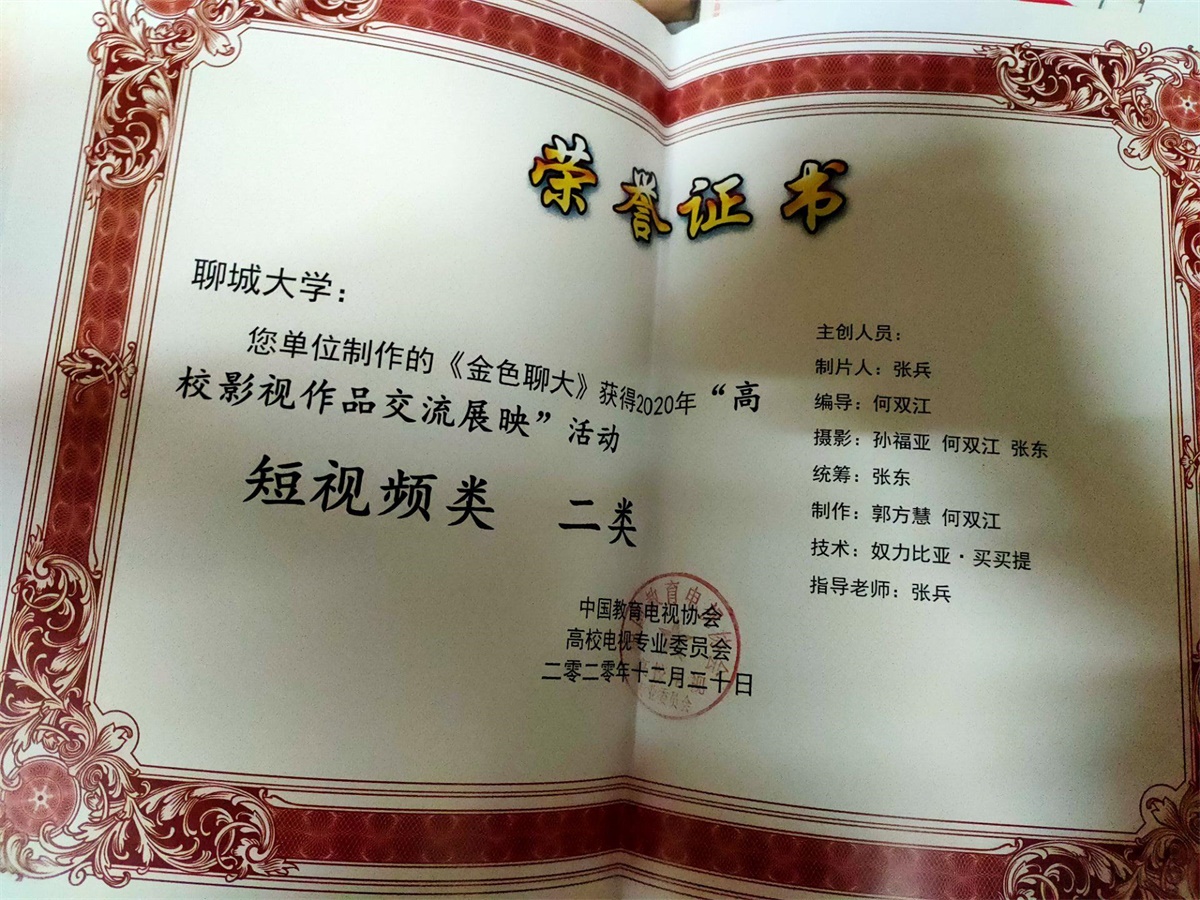 荣誉证书
聊城大学：
您单位制作的《金色聊大》获得2020年“高
校影视作品交流展映”活动
短视频类 二类
主创人员：
制片人：张兵
编导：何双江
摄影：孙福亚 何双江 张东
统筹：张东
制作：郭方慧 何双江
技术：奴力比亚·买买提
指导老师：张兵
中国教育电视协会
高校电视专业委员会
二零二零年十二月二十日